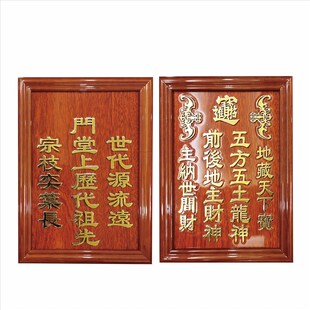 地藏天下寶
五方五土龍神
前後地主財神
主納世間財
世代源流遠
門堂上歷代祖先
宗枝奕葉長